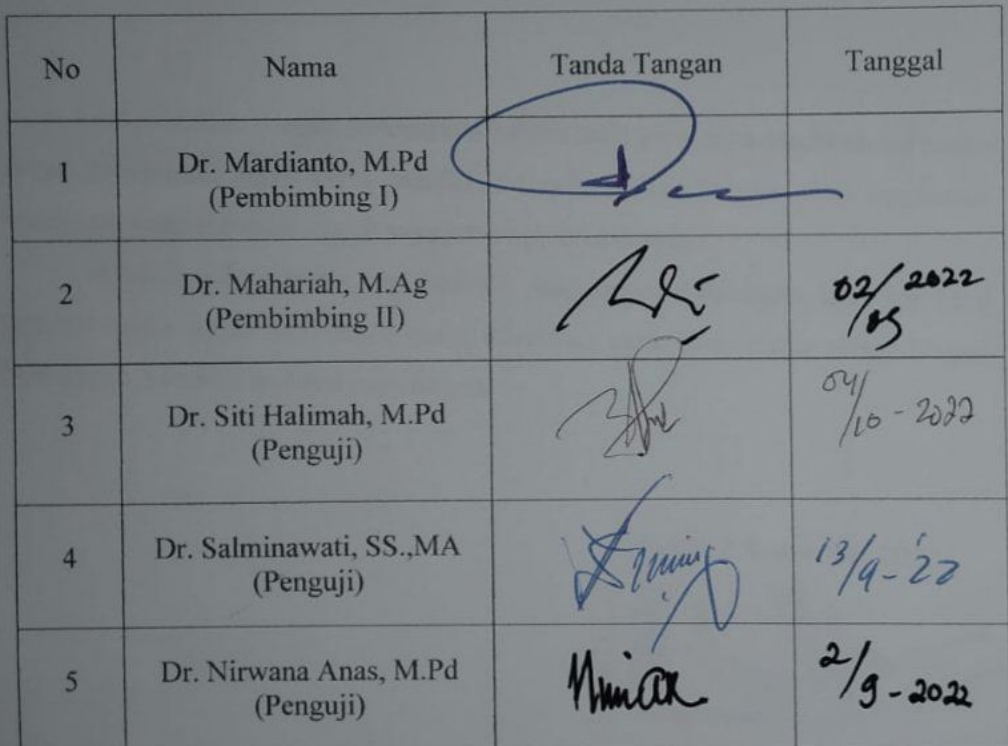 No Nama Tanda Tangan Tanggal
1 Dr. Mardianto, M.Pd
(Pembimbing I)
2 Dr. Mahariah, M.Ag
(Pembimbing II)
02/ 2022
3 Dr. Siti Halimah, M.Pd
(Penguji)
04/10 - 2022
4 Dr. Salminawati, SS.,MA
(Penguji)
13/9 - '22
5 Dr. Nirwana Anas, M.Pd
(Penguji)
2/9 - 2022